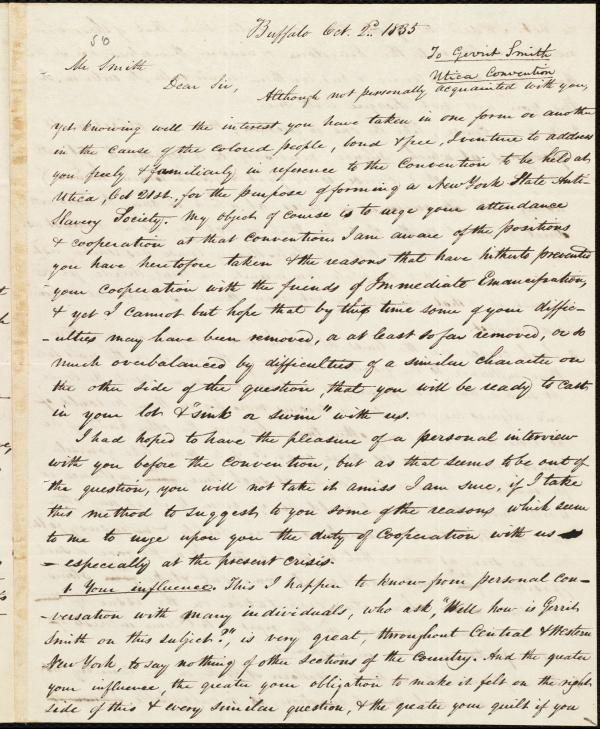 50
Buffalo Oct. 2d. 1835
To Gerrit Smith
Utica Convention
Mr Smith
Dear Sir,
Although not personally acquainted with you,
yet knowing well the interest you have taken in one form or another
in the cause of the colored people, bond & free, I venture to address
you freely & familiarly in reference to the Convention to be held at
Utica, Oct 21st. for the purpose of forming a New York State Anti-
Slavery Society. My object of course is to urge your attendance
& cooperation at that convention. I am aware of the positions
you have heretofore taken & the reasons that have hitherto prevented
your cooperation with the friends of Immediate Emancipation,
& yet I cannot but hope that by this time some of your diffic-
-ulties may have been removed, or at least so far removed, or so
much overbalanced by difficulties of a similar character on
the other side of the question, that you will be ready to cast
in your lot & "sink or swim" with us.
I had hoped to have the pleasure of a personal interview
with you before the convention, but as that seems to be out of
the question, you will not take it amiss I am sure, if I take
this method to suggest to you some of the reasons which seem
to me to urge upon you the duty of Cooperation with us
- especially at the present crisis.
1. Your influence. This I happen to know from personal con-
-versation with many individuals, who ask, "Well how is Gerrit
Smith on this subject?", is very great, throughout Central & Western
New York, to say nothing of other sections of the Country. And the greater
your influence, the greater your obligation to make it felt on the right
side of this & every similar question, & the greater your guilt if you